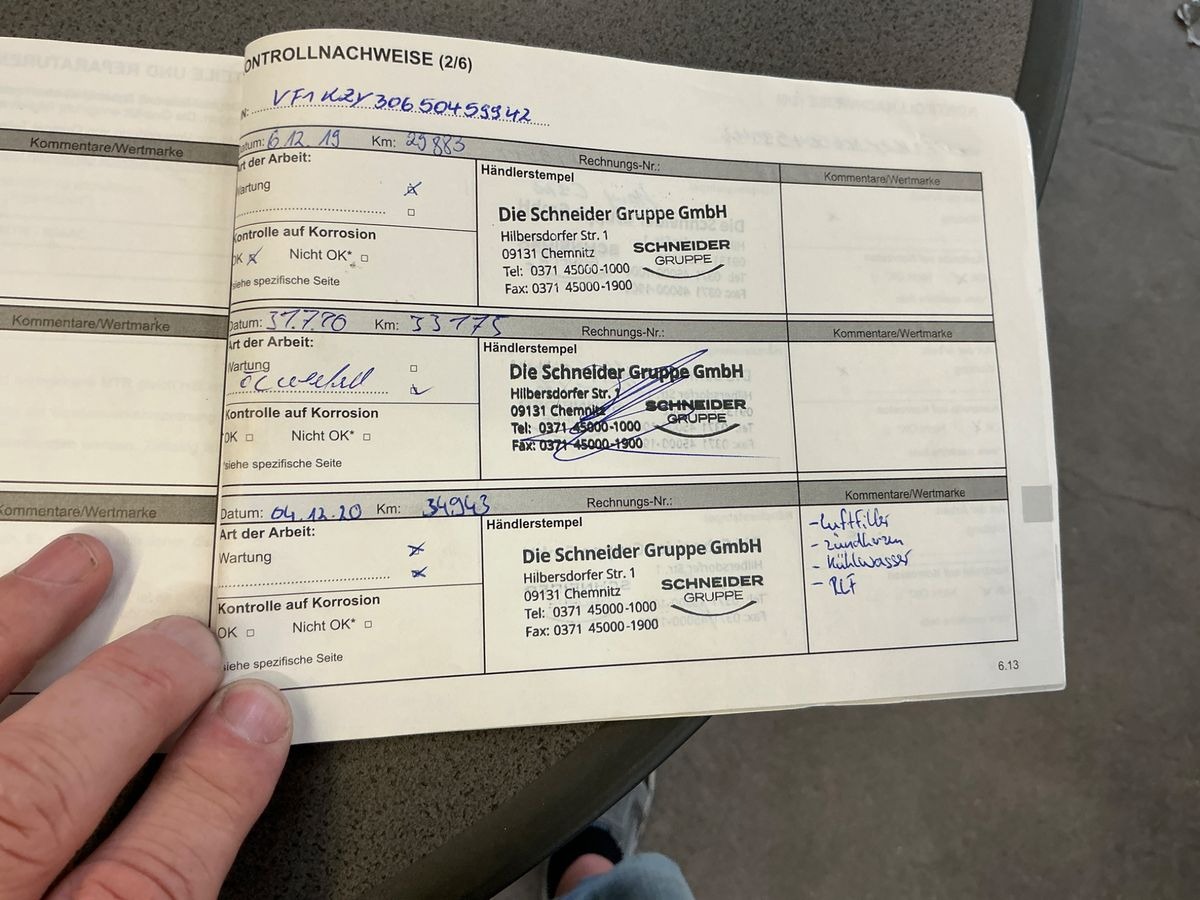 ONTROLLNACHWEISE (2/6)
N: VF1KZY30650459942
Kommentare/Wertmarke
atum: 6.12.19 Km: 29883 Rechnungs-Nr.: Kommentare/Wertmarke
Art der Arbeit:
Wartung
Kontrolle auf Korrosion
OK Nicht OK*
siehe spezifische Seite
Händlerstempel
Die Schneider Gruppe GmbH
Hilbersdorfer Str. 1
09131 Chemnitz
Tel: 0371 45000-1000
Fax: 0371 45000-1900
SCHNEIDER
GRUPPE
Kommentare/Wertmarke
Datum: 31.7.20 Km: 33175 Rechnungs-Nr.: Kommentare/Wertmarke
Art der Arbeit:
Wartung
Kontrolle auf Korrosion
OK Nicht OK*
*siehe spezifische Seite
Händlerstempel
Die Schneider Gruppe GmbH
Hilbersdorfer Str. 1
09131 Chemnitz
Tel: 0371 45000-1000
Fax: 0371 45000-1900
SCHNEIDER
GRUPPE
Kommentare/Wertmarke
Datum: 04.12.20 Km: 34943 Rechnungs-Nr.: Kommentare/Wertmarke
Art der Arbeit:
Wartung
Kontrolle auf Korrosion
OK Nicht OK*
siehe spezifische Seite
Händlerstempel
Die Schneider Gruppe GmbH
Hilbersdorfer Str. 1
09131 Chemnitz
Tel: 0371 45000-1000
Fax: 0371 45000-1900
SCHNEIDER
GRUPPE
- Luftfilter
- Zündkerzen
- Kühlwasser
- BLF
6.13